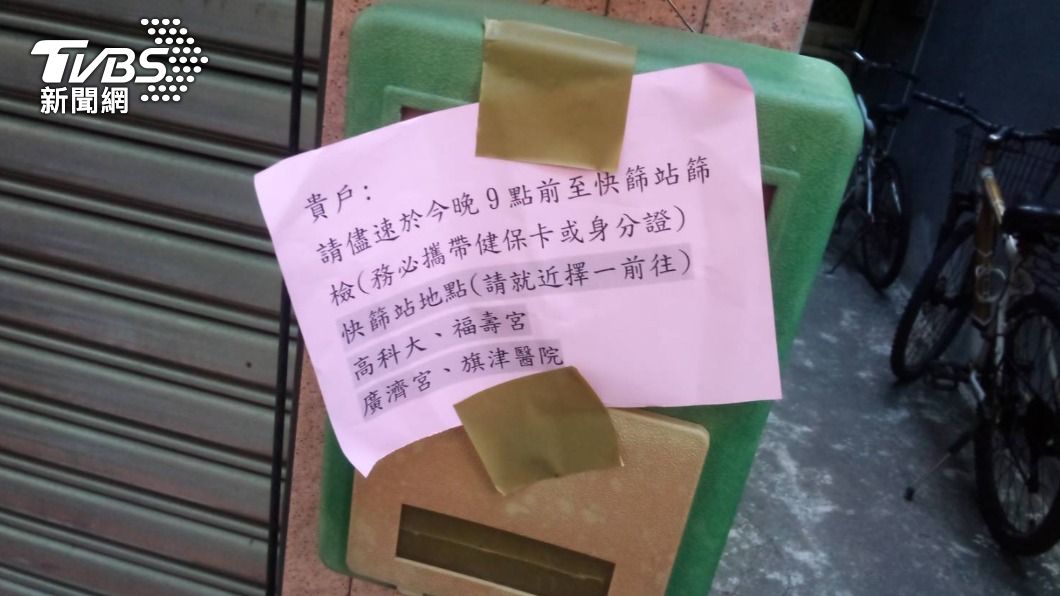 TVBS
新聞網
貴戶：
請儘速於今晚9點前至快篩站篩
檢(務必攜帶健保卡或身分證)
快篩站地點(請就近擇一前往)
高科大、福壽宮
廣濟宮、旗津醫院